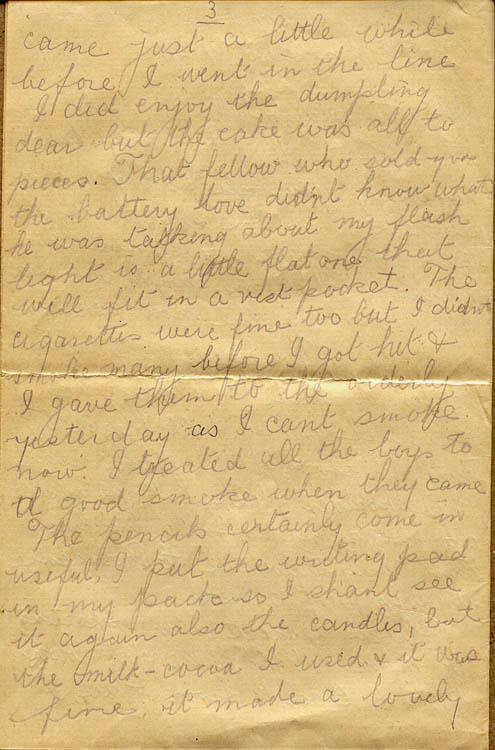 3
came just a little while
before I went in the line
I did enjoy the dumpling
dear but the cake was all to
pieces. That fellow who sold you
the battery love didn't know what
he was talking about my flash
light is a little flat one that
will fit in a vest pocket. The
cigarettes were fine too but I didn't
smoke many before I got hit &
I gave them to the orderly
yesterday as I cant smoke
now. I treated all the boys to
a good smoke when they came
The pencils certainly come in
useful, I put the writing pad
in my pack so I shant see
it again also the candles, but
the milk-cocoa I used & it was
fine, it made a lovely